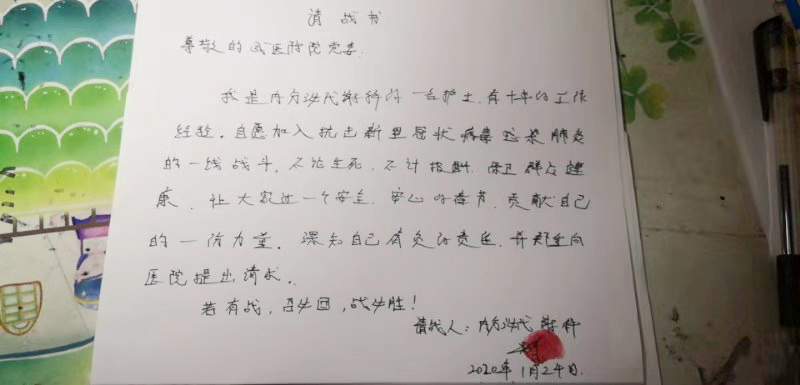 请战书
尊敬的我医院党委：
我是内分泌代谢科的一名护士，有十年的工作
经验。自愿加入抗击新型冠状病毒感染肺炎
的一线战斗，不论生死，不计报酬，保卫群众健
康，让大家过一个安全、安心的春节，贡献自己
的一份力量。深知自己肩负的责任，并郑重向
医院提出请求。
若有战，召必回，战必胜！
请战人：内分泌代谢科
2020年1月24日